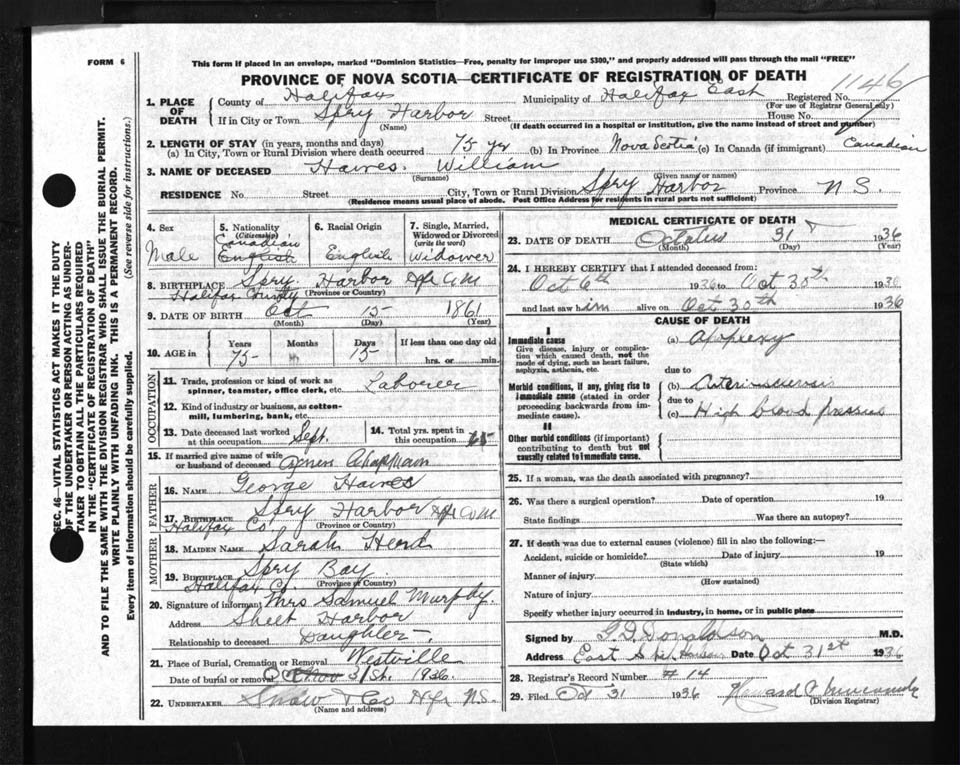 FORM 6
This form if placed in an envelope, marked "Dominion Statistics—Free, penalty for improper use $300," and properly addressed will pass through the mail "FREE"
PROVINCE OF NOVA SCOTIA—CERTIFICATE OF REGISTRATION OF DEATH
1146
1. PLACE OF DEATH { County of Halifax Municipality of Halifax East Registered No.
(For use of Registrar General only)
If in City or Town Spry Harbor Street House No.
(Name) (If death occurred in a hospital or institution, give the name instead of street and number)
2. LENGTH OF STAY (in years, months and days)
(a) In City, Town or Rural Division where death occurred 75 yr (b) In Province Nova Scotia (c) In Canada (if immigrant) Canadian
3. NAME OF DECEASED Haines William
(Surname) (Given name or names)
RESIDENCE No. Street City, Town or Rural Division Spry Harbor Province N S.
(Residence means usual place of abode. Post Office Address for residents in rural parts not sufficient)
4. Sex Male
5. Nationality (Citizenship) Canadian English
6. Racial Origin English
7. Single, Married, Widowed or Divorced (write the word) Widower
8. BIRTHPLACE Spry Harbor Hfx Co
Halifax County (Province or Country)
9. DATE OF BIRTH Oct 15 1861
(Month) (Day) (Year)
10. AGE in { Years 75 Months Days 15 If less than one day old hrs. or min.
OCCUPATION
11. Trade, profession or kind of work as spinner, teamster, office clerk, etc. Labourer
12. Kind of industry or business, as cotton-mill, lumbering, bank, etc.
13. Date deceased last worked at this occupation Sept.
14. Total yrs. spent in this occupation 65
15. If married give name of wife or husband of deceased Chapman
FATHER
16. NAME George Haines
17. BIRTHPLACE Spry Harbor Hfx
Halifax Co (Province or Country)
MOTHER
18. MAIDEN NAME Sarah
19. BIRTHPLACE Spry Bay
Halifax Co (Province or Country)
20. Signature of informant Mrs Samuel Murphy.
Address Sheet Harbor
Relationship to deceased Daughter
21. Place of Burial, Cremation or Removal Westville
Date of burial or removal Nov 31st. 1936.
22. UNDERTAKER Snow & Co Hfx N.S.
(Name and address)
MEDICAL CERTIFICATE OF DEATH
23. DATE OF DEATH October 31 1936
(Month) (Day) (Year)
24. I HEREBY CERTIFY that I attended deceased from:
Oct 6th 1936 to Oct 30th 1936
and last saw him alive on Oct 30th 1936
CAUSE OF DEATH
I
Immediate cause
Give disease, injury or complication which caused death, not the mode of dying, such as heart failure, asphyxia, asthenia, etc.
(a) Apoplexy
due to
Morbid conditions, if any, giving rise to immediate cause (stated in order proceeding backwards from immediate cause).
(b) Arteriosclerosis
due to
(c) High blood pressure
II
Other morbid conditions (if important) contributing to death but not causally related to immediate cause.
25. If a woman, was the death associated with pregnancy?
26. Was there a surgical operation? Date of operation 19
State findings Was there an autopsy?
27. If death was due to external causes (violence) fill in also the following:—
Accident, suicide or homicide? Date of injury 19
(State which)
Manner of injury
(How sustained)
Nature of injury
Specify whether injury occurred in industry, in home, or in public place
Signed by Donaldson M.D.
Address East Date Oct 31st 1936
28. Registrar's Record Number # 14
29. Filed Oct 31 1936 Howard
(Division Registrar)
SEC. 46—VITAL STATISTICS ACT MAKES IT THE DUTY
OF THE UNDERTAKER OR PERSON ACTING AS UNDER-
TAKER TO OBTAIN ALL THE PARTICULARS REQUIRED
IN THE "CERTIFICATE OF REGISTRATION OF DEATH"
AND TO FILE THE SAME WITH THE DIVISION REGISTRAR WHO SHALL ISSUE THE BURIAL PERMIT.
WRITE PLAINLY WITH UNFADING INK. THIS IS A PERMANENT RECORD.
Every item of information should be carefully supplied. (See reverse side for instructions.)